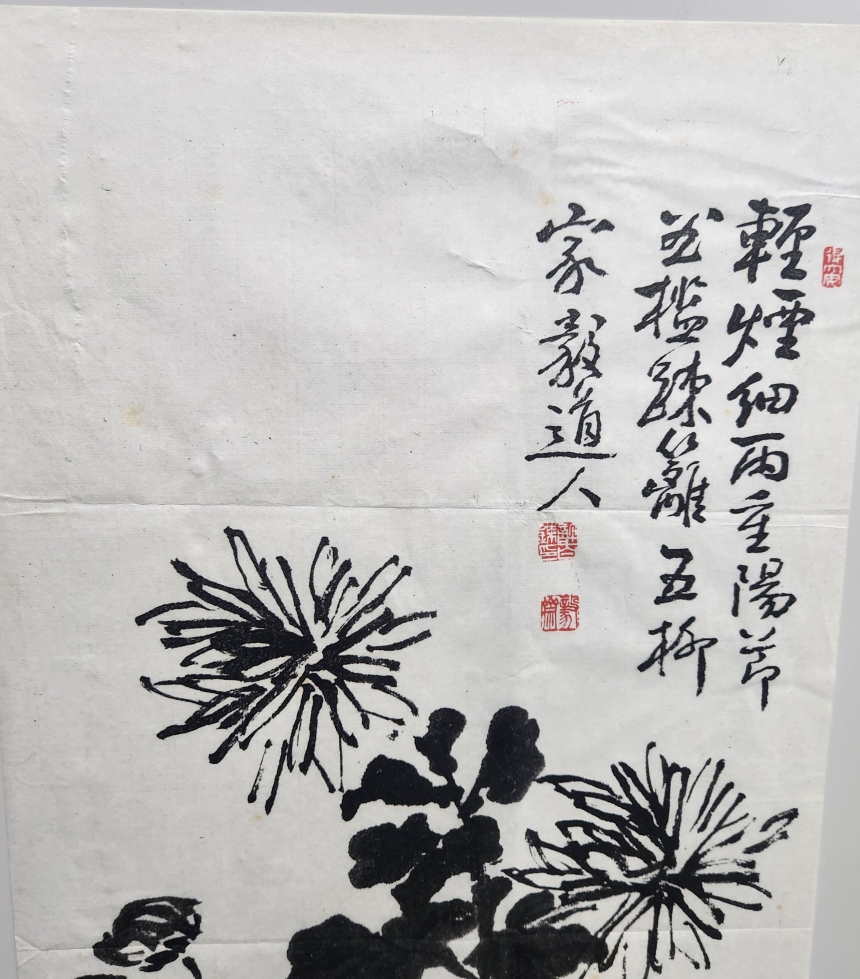 輕煙細雨重陽節
曲檻疎籬五柳
家 毅道人